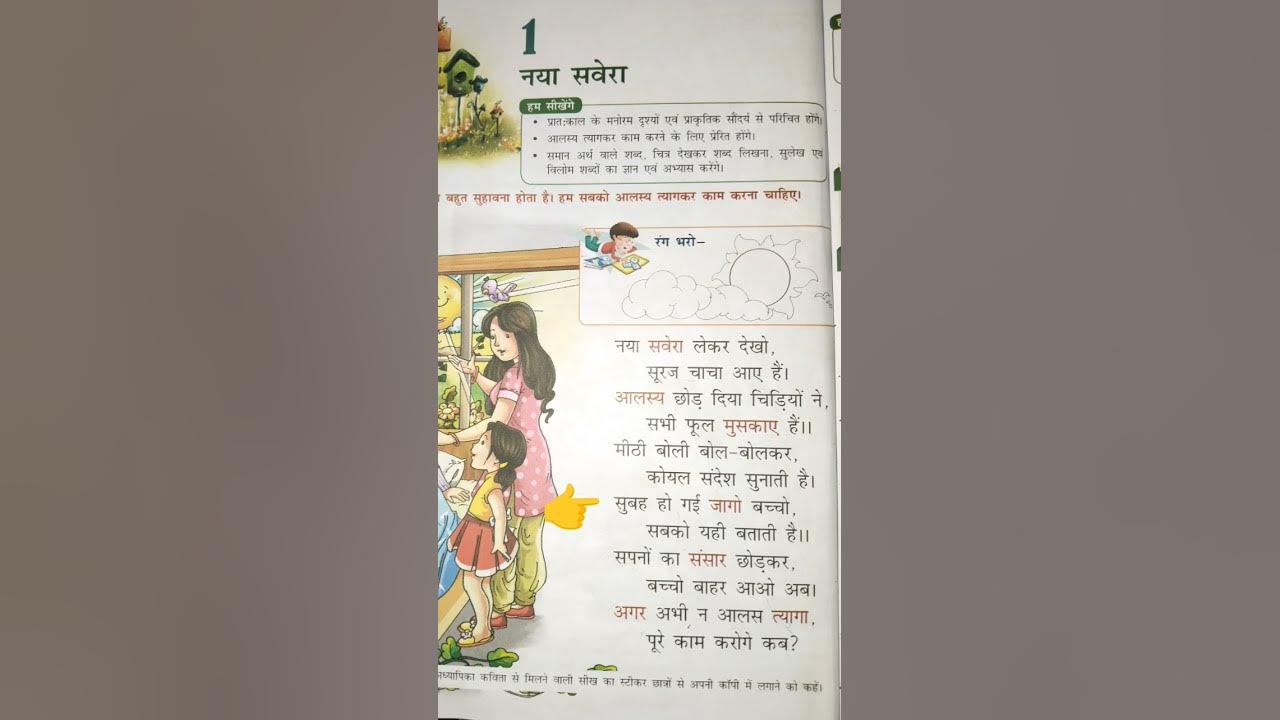 1
नया सवेरा
हम सीखेंगे
• प्रात:काल के मनोरम दृश्यों एवं प्राकृतिक सौंदर्य से परिचित होंगे।
• आलस्य त्यागकर काम करने के लिए प्रेरित होंगे।
• समान अर्थ वाले शब्द, चित्र देखकर शब्द लिखना, सुलेख एवं
विलोम शब्दों का ज्ञान एवं अभ्यास करेंगे।
बहुत सुहावना होता है। हम सबको आलस्य त्यागकर काम करना चाहिए।
रंग भरो–
नया सवेरा लेकर देखो,
सूरज चाचा आए हैं।
आलस्य छोड़ दिया चिड़ियों ने,
सभी फूल मुसकाए हैं।।
मीठी बोली बोल-बोलकर,
कोयल संदेश सुनाती है।
सुबह हो गई जागो बच्चो,
सबको यही बताती है।।
सपनों का संसार छोड़कर,
बच्चो बाहर आओ अब।
अगर अभी न आलस त्यागा,
पूरे काम करोगे कब?
कविता से मिलने वाली सीख का स्टीकर छात्रों से अपनी कॉपी में लगाने को कहें।